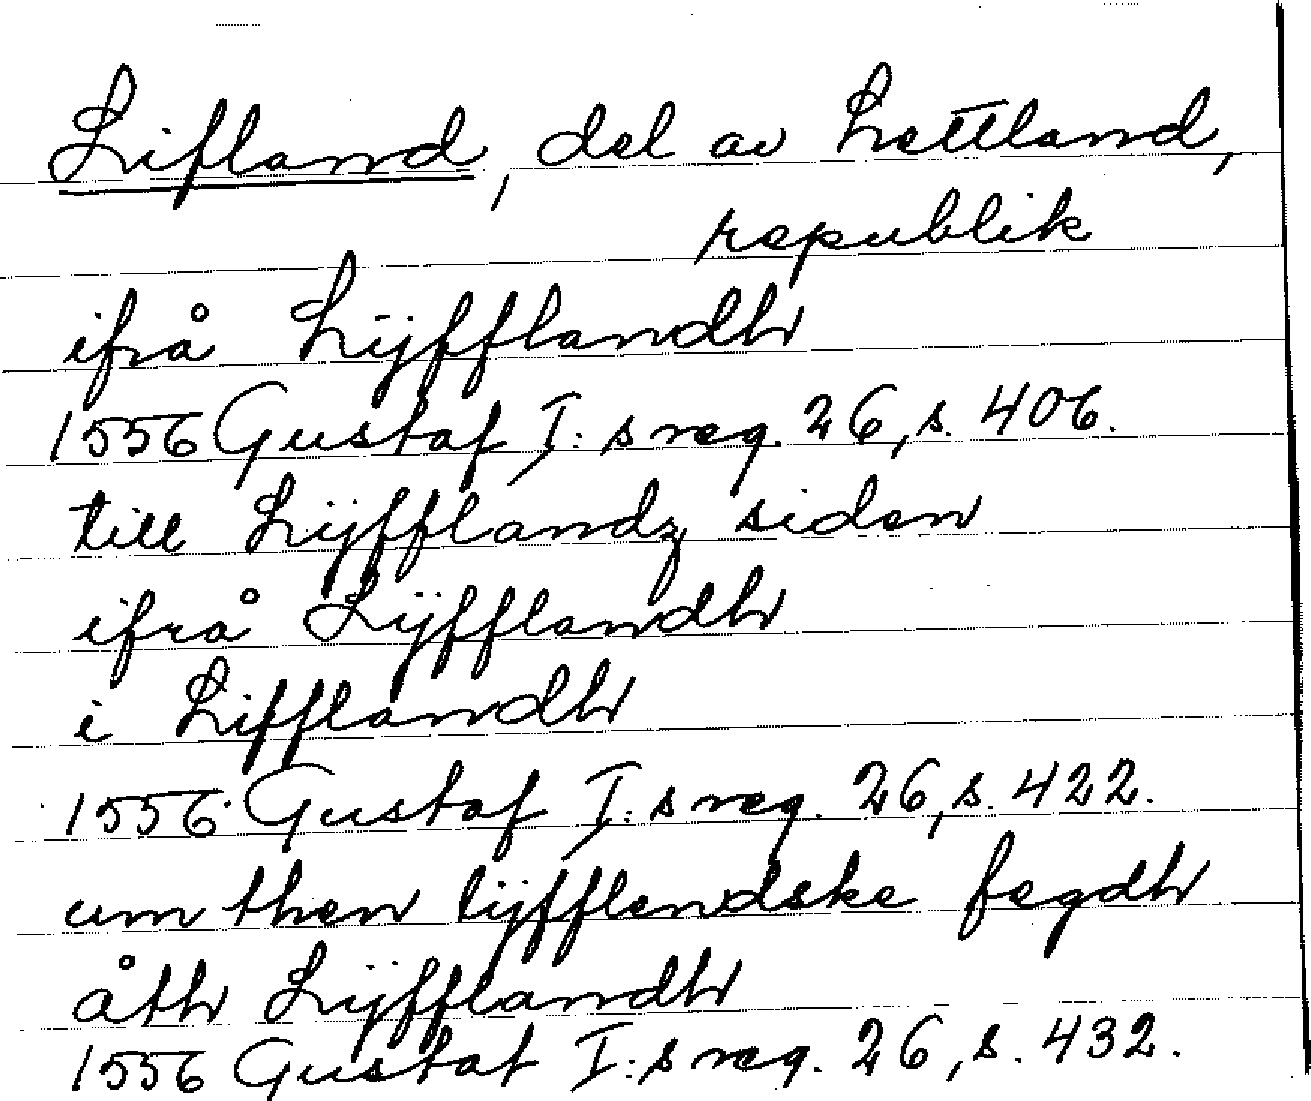 Lifland, del av Lettland,
republik
ifrå Lijfflandh
1556 Gustaf I:s reg. 26, s. 406.
till Lijfflandz siden
ifrå Lijfflandh
i Lifflandh
1556 Gustaf I:s reg. 26, s. 422.
um then lijfflendske fegdh
åth Lijfflandh
1556 Gustaf I:s reg. 26, s. 432.